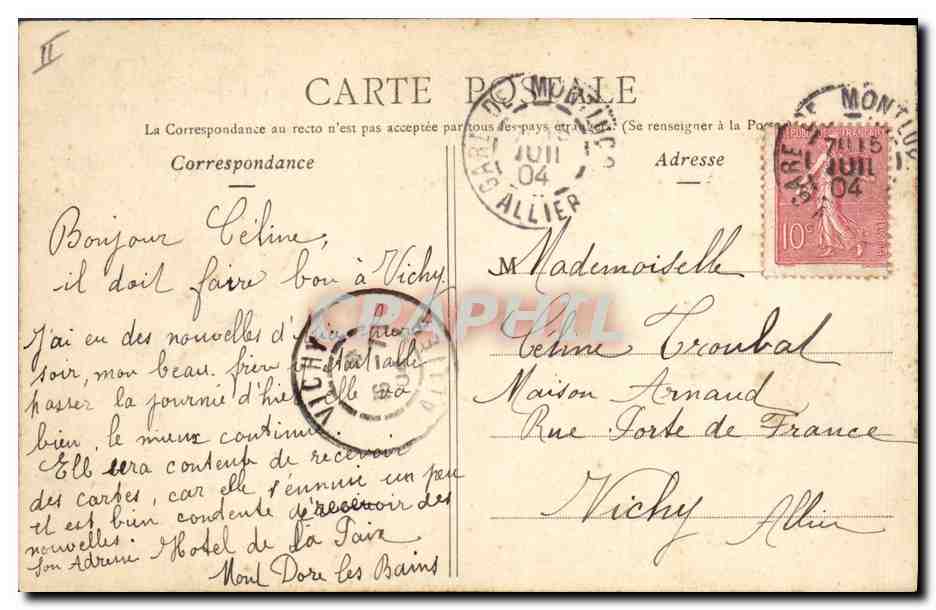 II
CARTE POSTALE
La Correspondance au recto n'est pas acceptée par tous les pays étrangers. (Se renseigner à la Poste)
Correspondance
Adresse
GARE DE MONTLUÇON
JUIL
04
ALLIER
GARE DE MONTLUÇ
7 15
JUIL
04
REPUBLIQUE FRANCAISE
10c
Bonjour Céline,
il doit faire bon à Vichy.
J'ai eu des nouvelles d' hier
soir, mon beau. frère était allé
passer la journée d'hier elle va
bien, le mieux continue.
Elle sera contente de recevoir
des cartes, car elle s'ennuie un peu
et est bien contente de recevoir des
nouvelles.
Son Adresse Hotel de La Paix
Mont Dore les Bains
VICHY
ALLIER
M Mademoiselle
Céline Troubat
Maison Arnaud
Rue Porte de France
Vichy
Allier
CPAPHIL